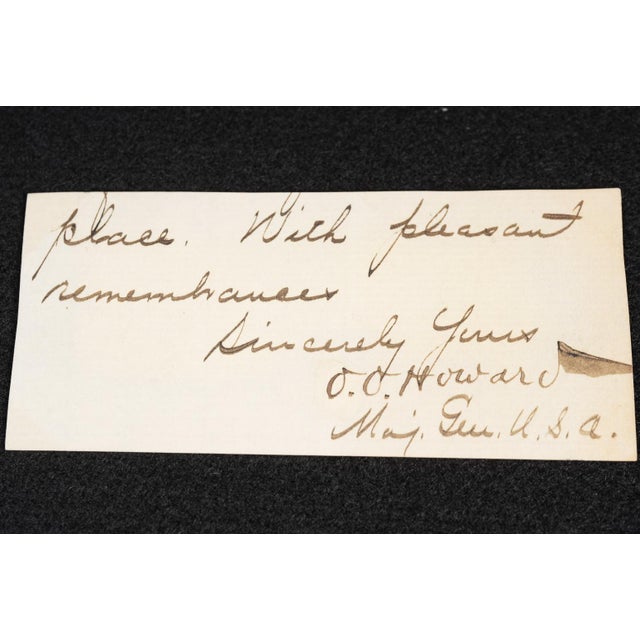 place. With pleasant
remembrances
Sincerely Yours
O.O. Howard
Maj. Gen. U.S.A.